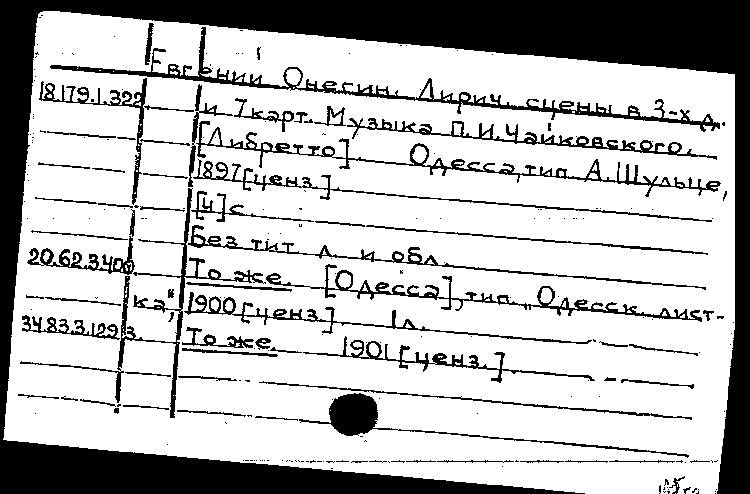 Евгений Онегин. Лирич. сцены в 3-х д.
18.179.1.322 и 7 карт. Музыка П.И.Чайковского.
[Либретто]. Одесса, тип. А. Шульце,
1897 [ценз.].
[4] с.
Без тит. л. и обл.
20.62.3.400. То же. [Одесса], тип. „Одесск. лист-
ка", 1900 [ценз.]. 1 л.
34.83.3.129 То же. 1901 [ценз.].